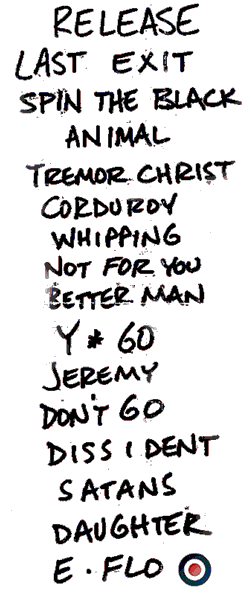 RELEASE
LAST EXIT
SPIN THE BLACK
ANIMAL
TREMOR CHRIST
CORDUROY
WHIPPING
NOT FOR YOU
BETTER MAN
Y * GO
JEREMY
DON'T GO
DISSIDENT
SATANS
DAUGHTER
E. FLO